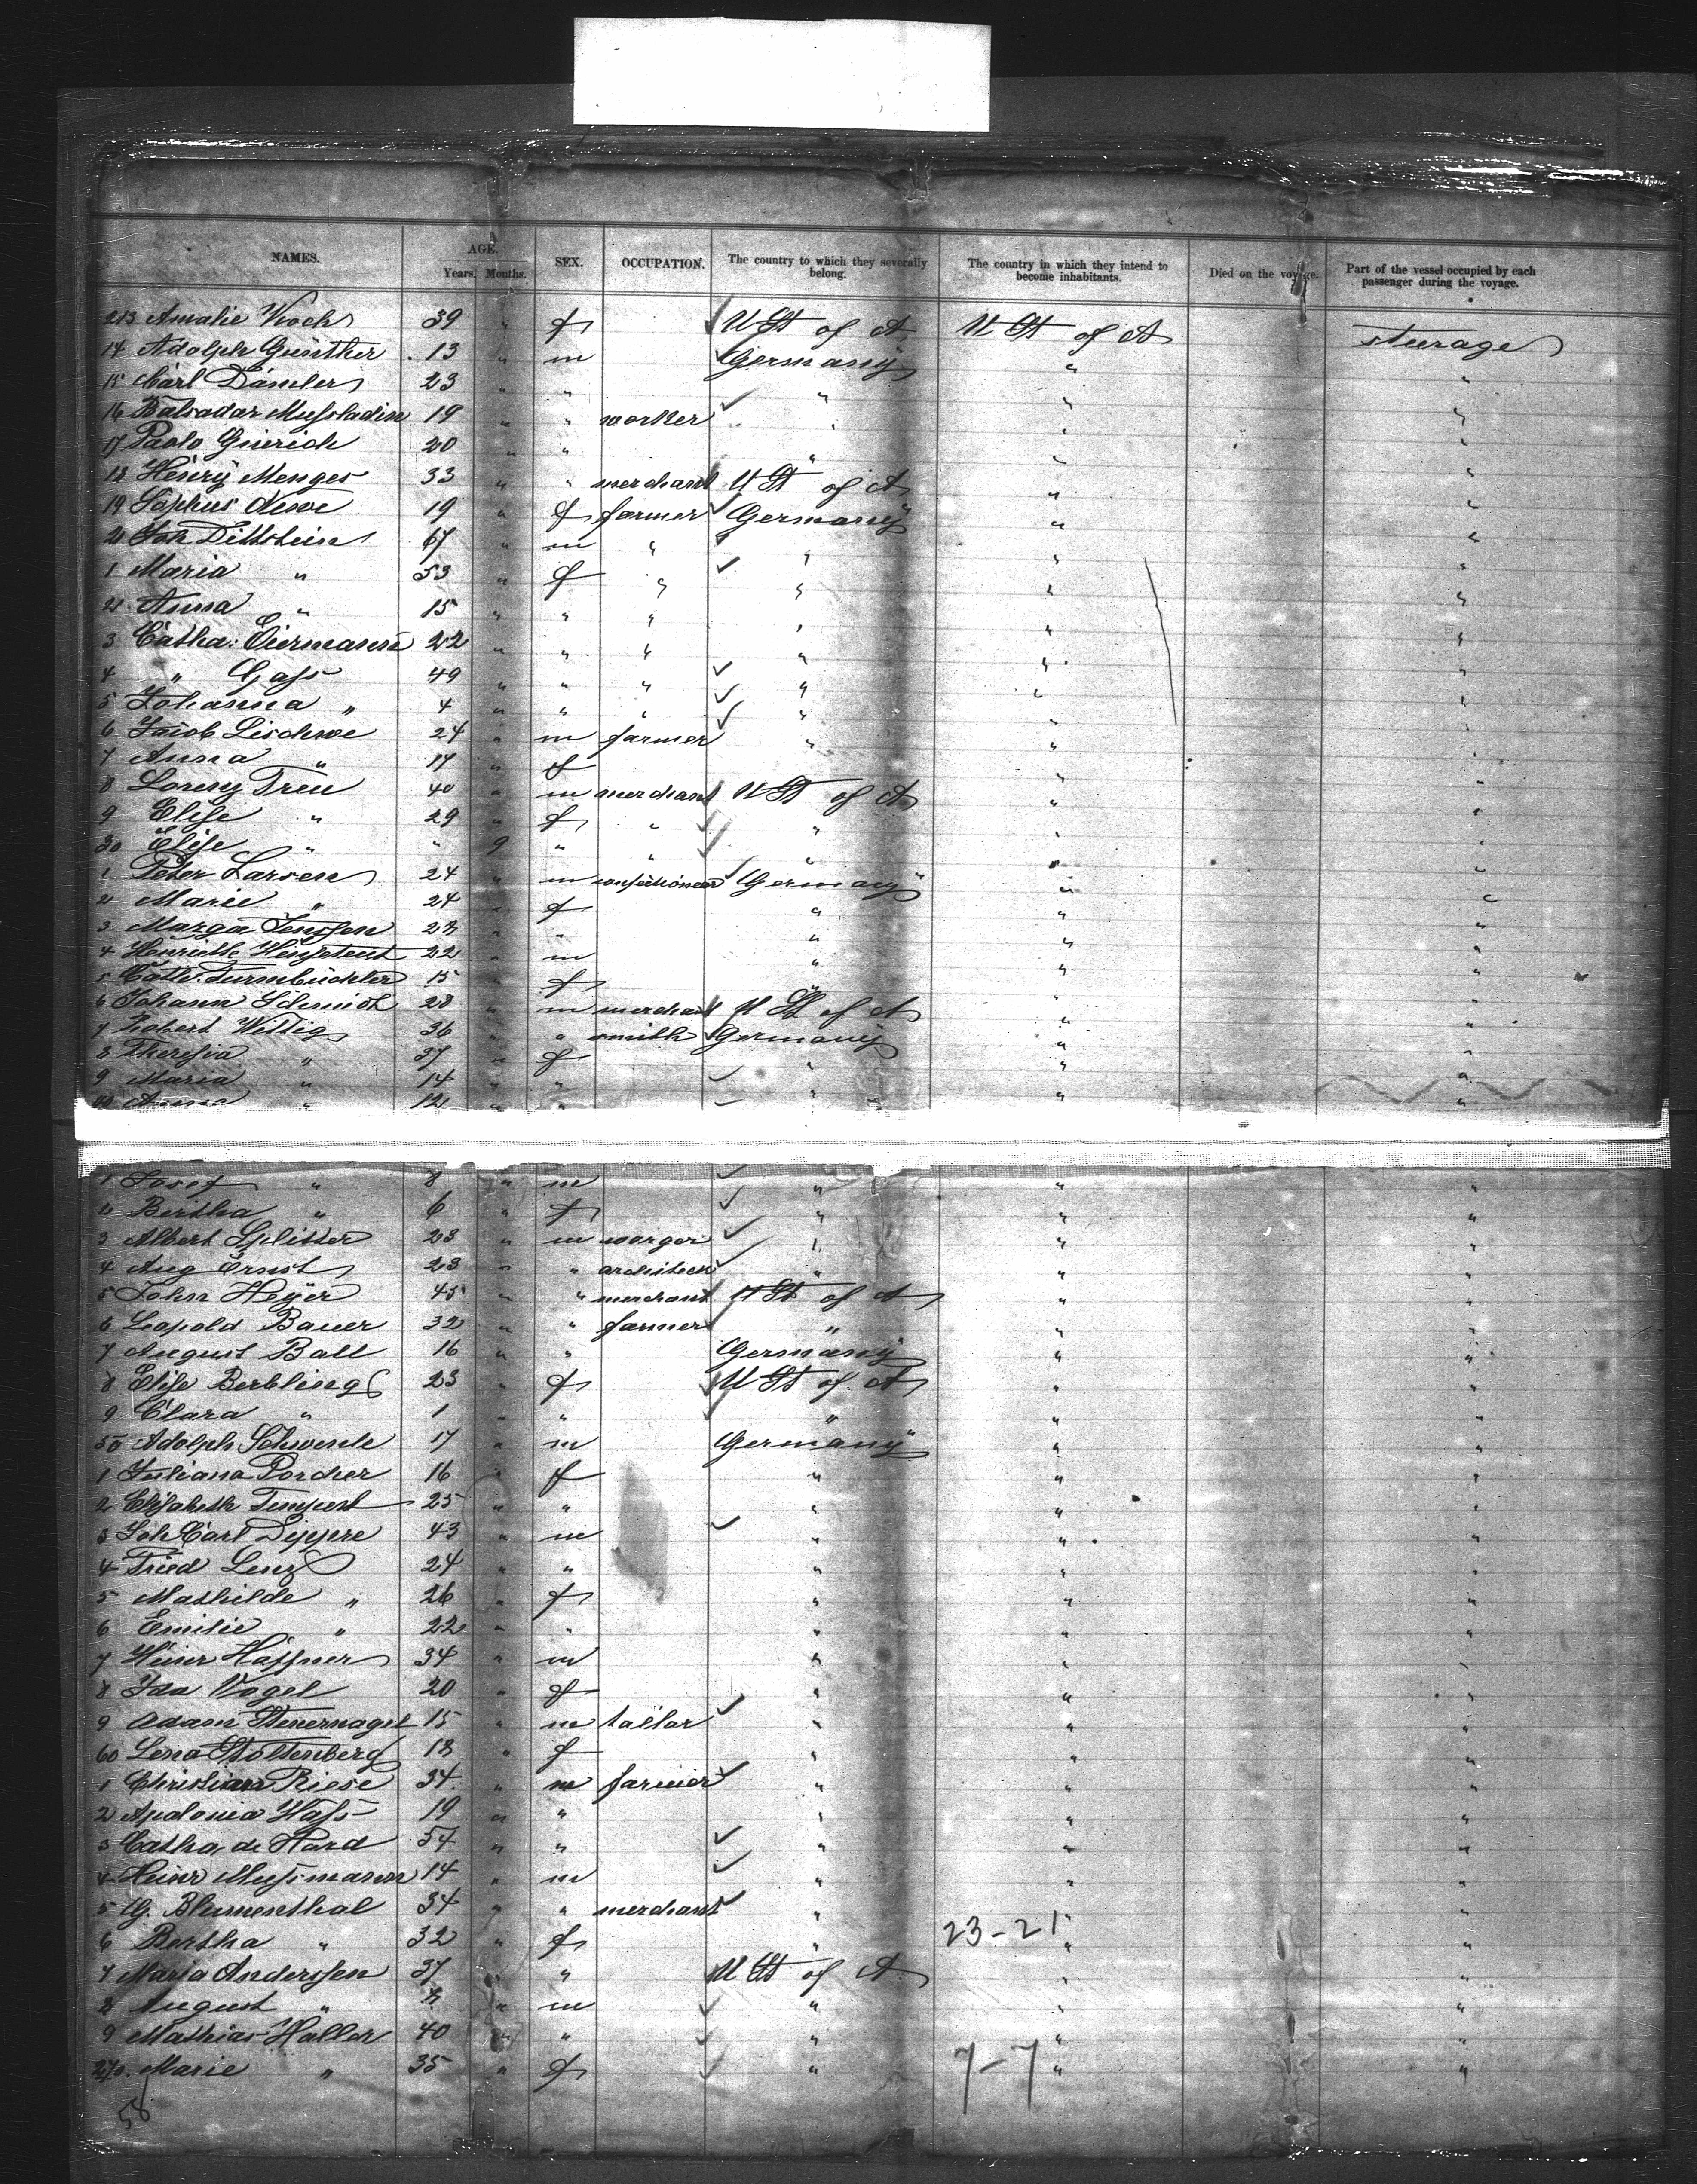 NAMES. AGE. Years. Months. SEX. OCCUPATION. The country to which they severally belong. The country in which they intend to become inhabitants. Died on the voyage. Part of the vessel occupied by each passenger during the voyage.
213 Amalie Koch 39 " f U St of A U St of A steerage
14 Adolph Günther 13 " m Germany " "
15 Carl Dämler 23 " " " " "
16 19 " " worker " " "
17 Paolo 20 " " " " "
18 Henry Menges 33 " " merchant U St of A " "
19 19 " f farmer Germany " "
20 Joh Dittstein 67 " m " " " "
1 Maria " 53 " f " " " "
2 Anna " 15 " " " " " "
3 Catha: Eiermann 22 " " " " " "
4 " Gaſs 49 " " " " " "
5 Johanna " 4 " " " " " "
6 Jacob 24 " m farmer " " "
7 Anna " 17 " f " "
8 Lorenz Treu 40 " m merchant U St of A " "
9 Eliſe " 29 " f " " " "
30 Eliſe " " 9 " " " " "
1 Peter Larsen 24 " m Germany " "
2 Marie " 24 " f " " "
3 Marga Jenſsen 23 " " " " "
4 Henriette 22 " m " " "
5 Cath. Turmbüchler 15 " f " " "
6 Johann Schmidt 28 " m merchant U St of A " "
7 Robert Wittig 36 " " smith Germany " "
8 Theresia " 37 " f " " "
9 Maria " 14 " " " " "
40 Anna " 12 " " " " "
1 Josef " 8 " m " " "
2 Bertha " 6 " f " " "
3 Albert Splitter 23 " m worger " " "
4 Aug Ernst 23 " " architect " " "
5 John Heÿer 45 " " merchant U St of A " "
6 Leopold Bauer 32 " " farmer " " "
7 August Ball 16 " " Germany " "
8 Eliſe Berbling 23 " f U St of A " "
9 Clara " 1 " " " " "
50 Adolph Schwenle 17 " m Germany " "
1 Juliana Porcher 16 " f " " "
2 Elisabeth Tempest 25 " " " " "
3 Joh Carl Deppre 43 " m " " "
4 Fried Lenz 24 " " " " "
5 Mathilde " 26 " f " " "
6 Emilie " 22 " " " " "
7 Heinr Häffner 34 " m " " "
8 Ida Vogel 20 " f " " "
9 Adam Stenernagel 15 " m tailor " " "
60 Lena Stoltenberg 13 " f " " "
1 Christian Riese 34 " m farmer " " "
2 Apolonia Haſs 19 " " " " "
3 Catha. de Hard 54 " " " " "
4 Heinr Muſsmann 14 " m " " "
5 G. Blumenthal 34 " " merchant " " "
6 Bertha " 32 " f " 23-21 " "
7 Maria Anderſsen 37 " " U St of A " "
8 August " " m " " "
9 Mathias Haller 40 " " " " "
270. Marie " 35 " f " 7-7 " "
58